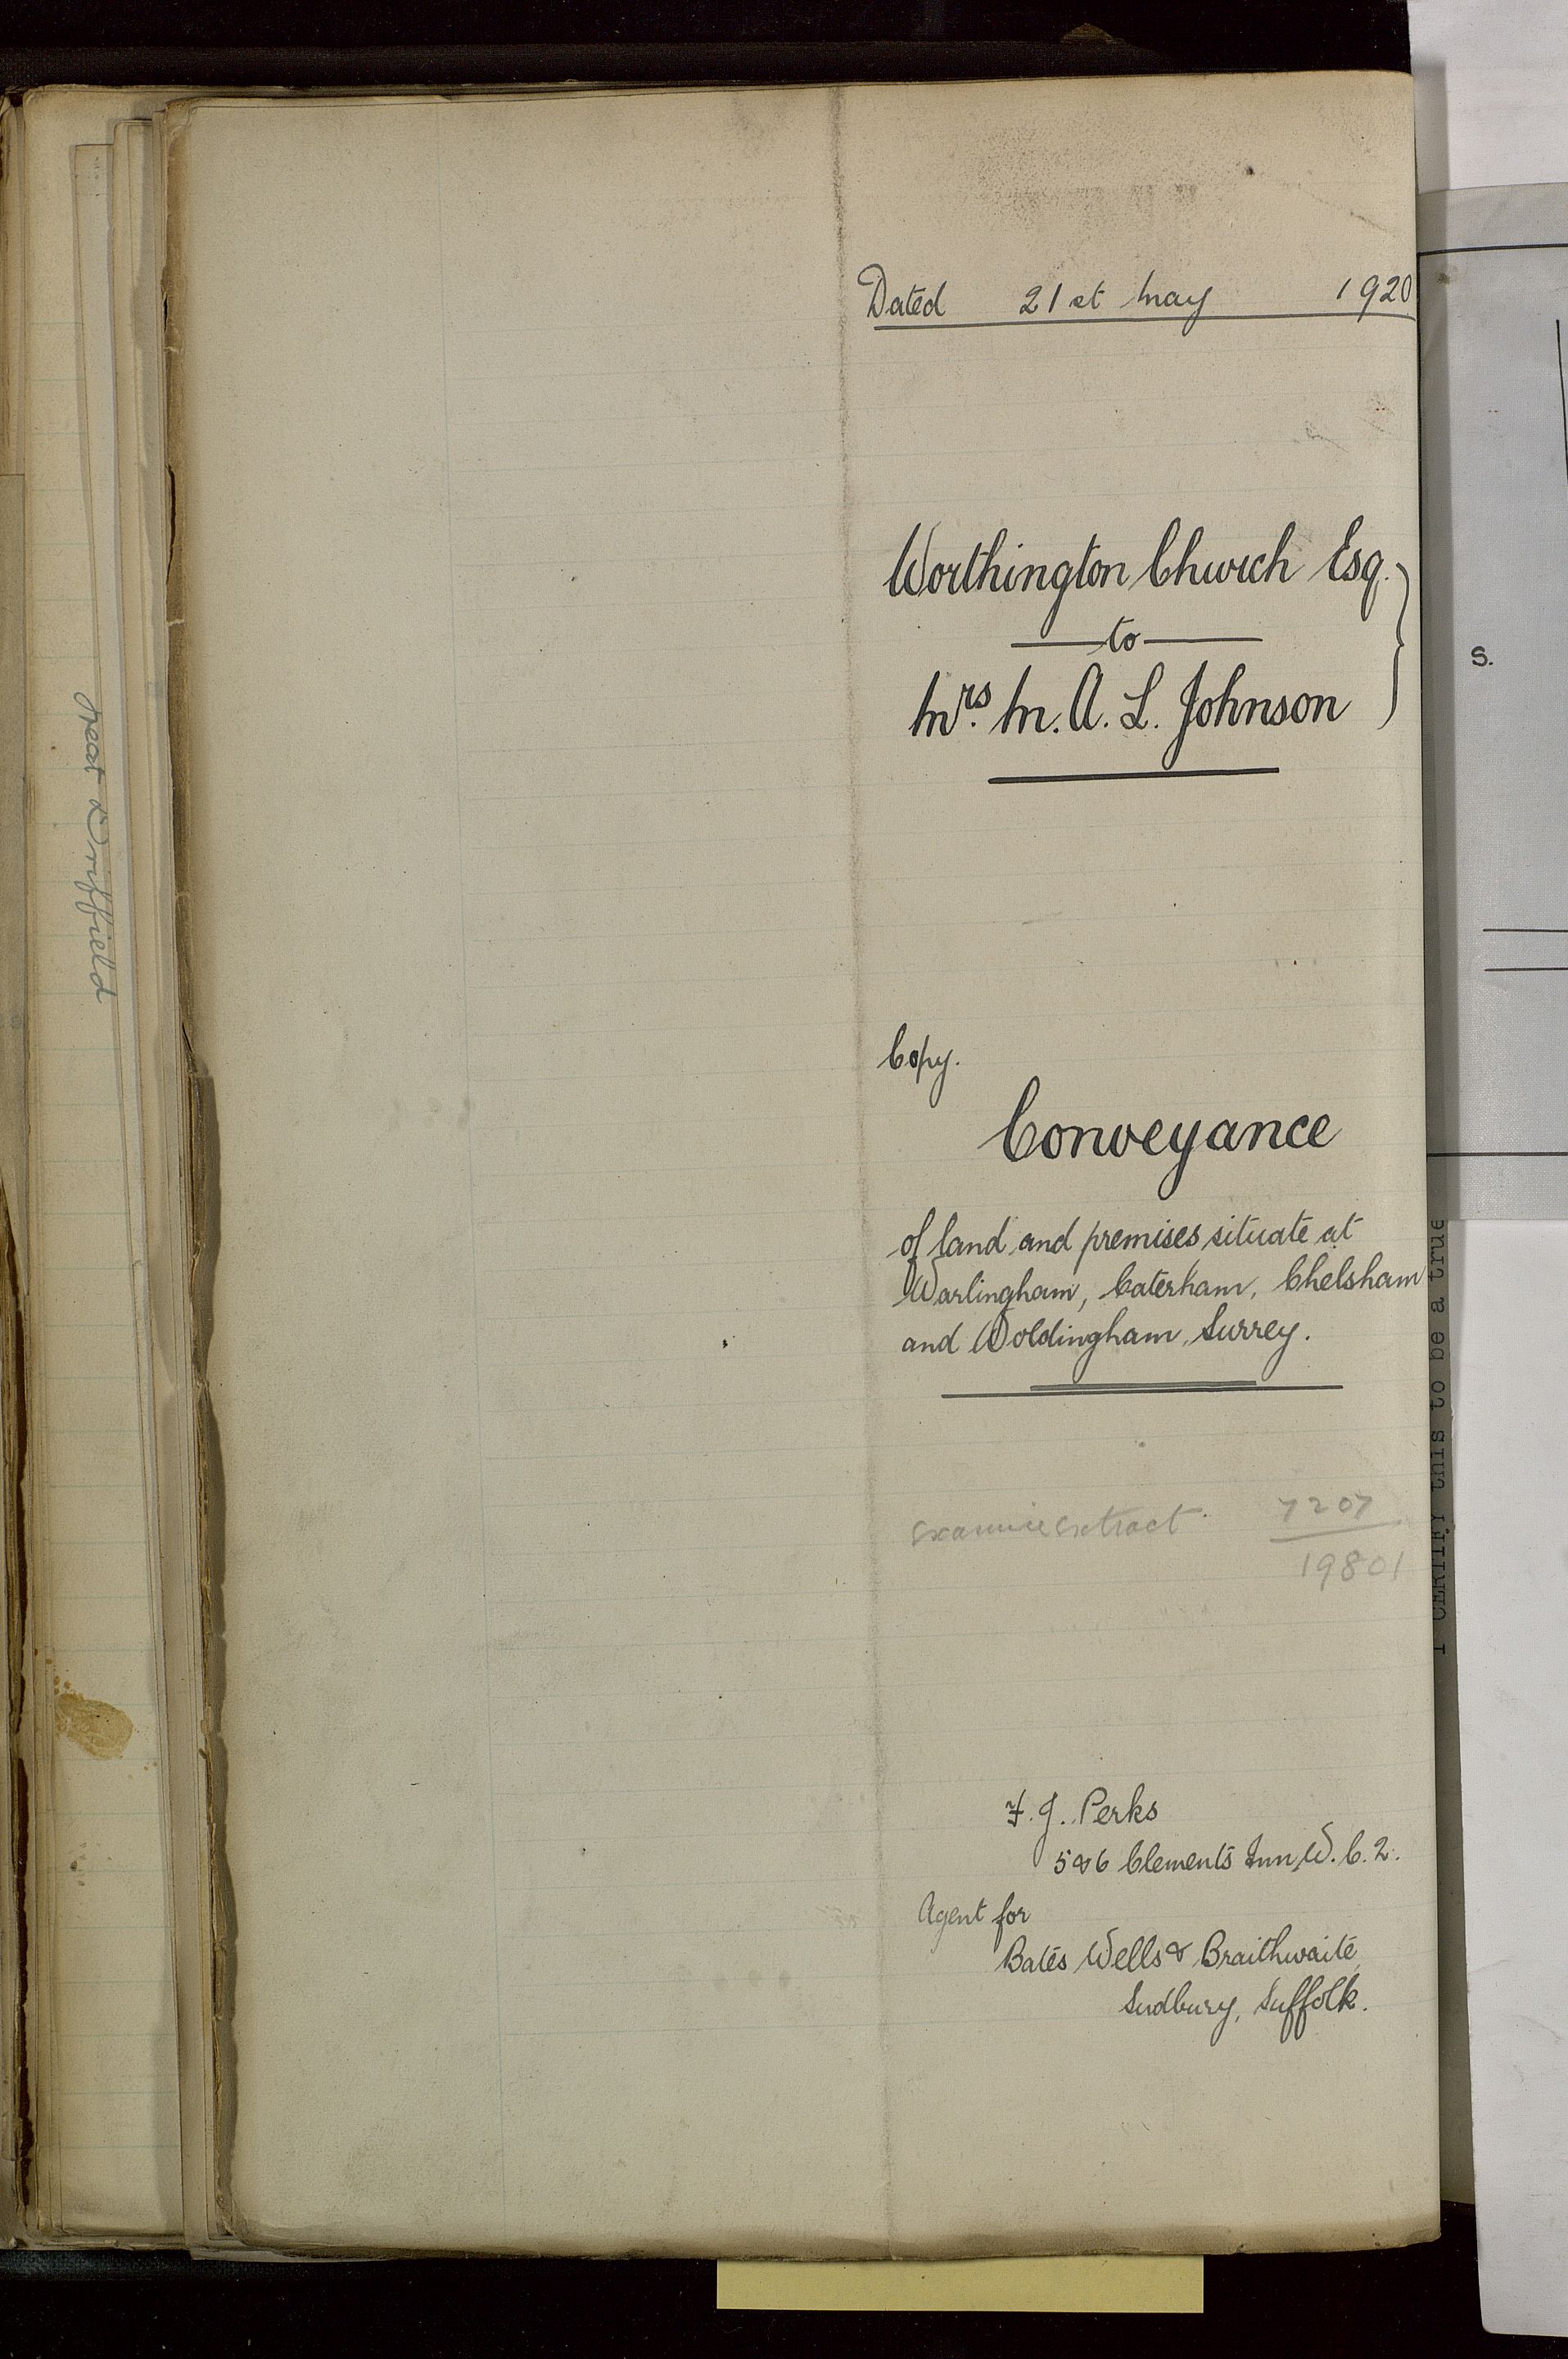 Dated 21st May 1920
Worthington Church Esq.
to
Mrs. M. A. L. Johnson
Copy.
Conveyance
of land and premises situate at
Warlingham, Caterham, Chelsham
and Woldingham, Surrey.
examine extract. 7207
19801
F. J. Perks
5 & 6 Clements Inn, W. C. 2.
Agent for
Bates Wells & Braithwaite,
Sudbury, Suffolk.
Driffield
S.
I CERTIFY this to be a true